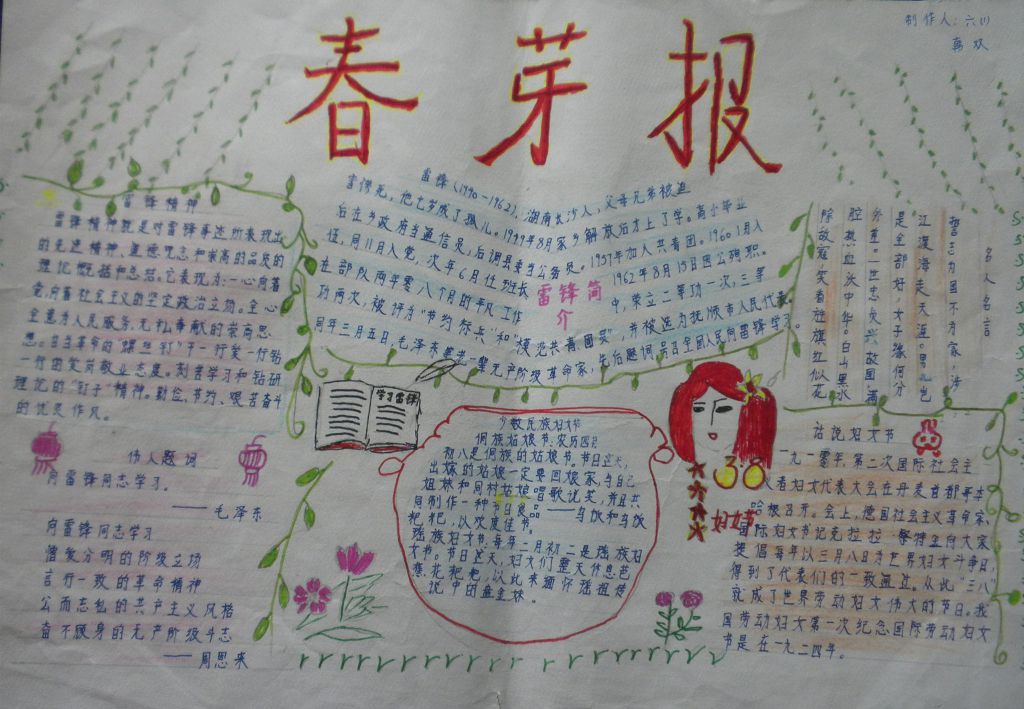 春芽报
制作人：六(1)
韩欢
雷锋精神
雷锋精神就是对雷锋事迹所表现出
的先进精神、道德观念和崇高的品质的
理论概括和总结。它表现为：一心向着
党，向着社会主义的坚定政治立场。全心
全意为人民服务，无私奉献的崇高思
想。甘当革命的“螺丝钉”干一行爱一行钻
一行的爱岗敬业态度。刻苦学习和钻研
理论的“钉子”精神。勤俭、节约、艰苦奋斗
的优良作风。
伟人题词
向雷锋同志学习。
——毛泽东
向雷锋同志学习
憎爱分明的阶级立场
言行一致的革命精神
公而忘私的共产主义风格
奋不顾身的无产阶级斗志
——周恩来
雷锋（1940—1962），湖南长沙人，父母兄弟被迫
害惨死，他七岁成了孤儿。1949年8月家乡解放后才上了学。高小毕业
后在乡政府当通信员，后调县委当公务员。1957年加入共青团。1960 1月入
伍，同11月入党，次年6月任班长
1962年8月15日因公殉职。
在部队两年零八个月的平凡工作
中，荣立二等功一次，三等
功两次，被评为“节约标兵”和“模范共青团员”，并被选为抚顺市人民代表。
同年三月五日，毛泽东等老一辈无产阶级革命家，先后题词，号召全国人民向雷锋学习。
雷锋简
介
学习雷锋
少数民族妇女节
侗族姑娘节：农历四月
初八是侗族的姑娘节。节日这天，
出嫁的姑娘一定要回娘家，与自己
姐妹和同村姑娘唱歌说笑，并且共
同制作一种节日食品——乌饭和乌饭
粑粑，以欢度佳节。
瑶族妇女节：每年二月初二是瑶族妇
女节。节日这天，妇女们整天休息艺
煮花粑粑，以此来缅怀瑶祖传
说中的盘金妹。
名人名言
誓志为国不为家，涉
江渡海走天涯。男儿岂
是全都好，女子缘何分
外差？一世忠贞兴故国，满
腔热血沃中华。白山黑水
除敌寇，笑看旌旗红似花
38
妇女节
话说妇女节
一九一零年，第二次国际社会主
义者妇女代表大会在丹麦首都哥本
哈根召开。会上，德国社会主义革命家、
国际妇女书记克拉拉·蔡特金向大家
提倡每年以三月八日为世界妇女斗争日，
得到了代表们的一致通过。从此“三八”
就成了世界劳动妇女伟大的节日。我
国劳动妇女第一次纪念国际劳动妇女
节是在一九二四年。